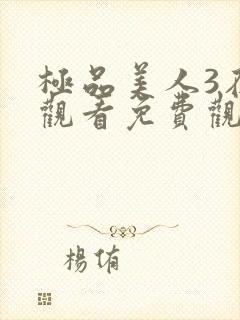 極品美人3在
觀看免費觀
楊侑